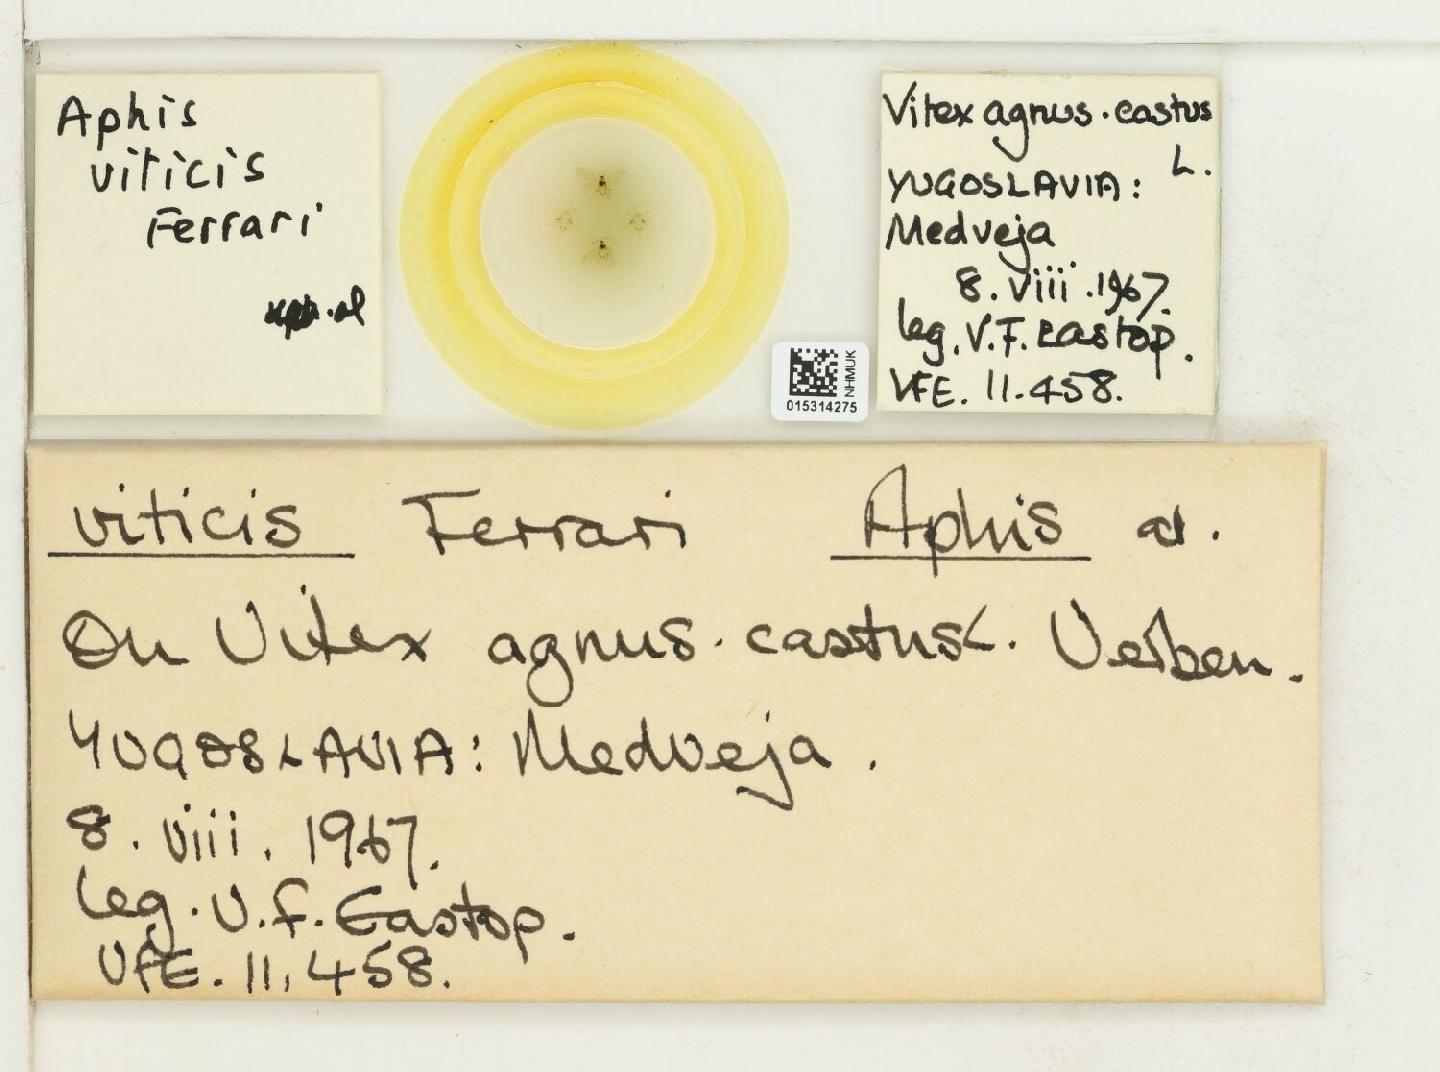 Aphis
viticis
Ferrari
al
NHMUK
015314275
Vitex agnus.castus
L.
YUGOSLAVIA:
Medveja
8.viii.1967.
leg. V.F. Eastop.
VFE. 11.458.
viticis Ferrari Aphis al.
On Vitex agnus.castus L. Verben.
YUGOSLAVIA: Medveja.
8. viii. 1967.
leg. V.F. Eastop.
VFE. 11,458.